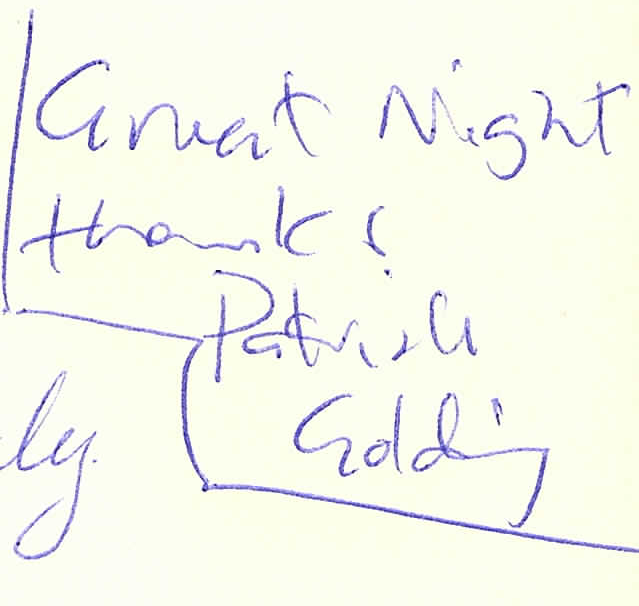 Great Night
thanks
Patrick
Golding
ly.